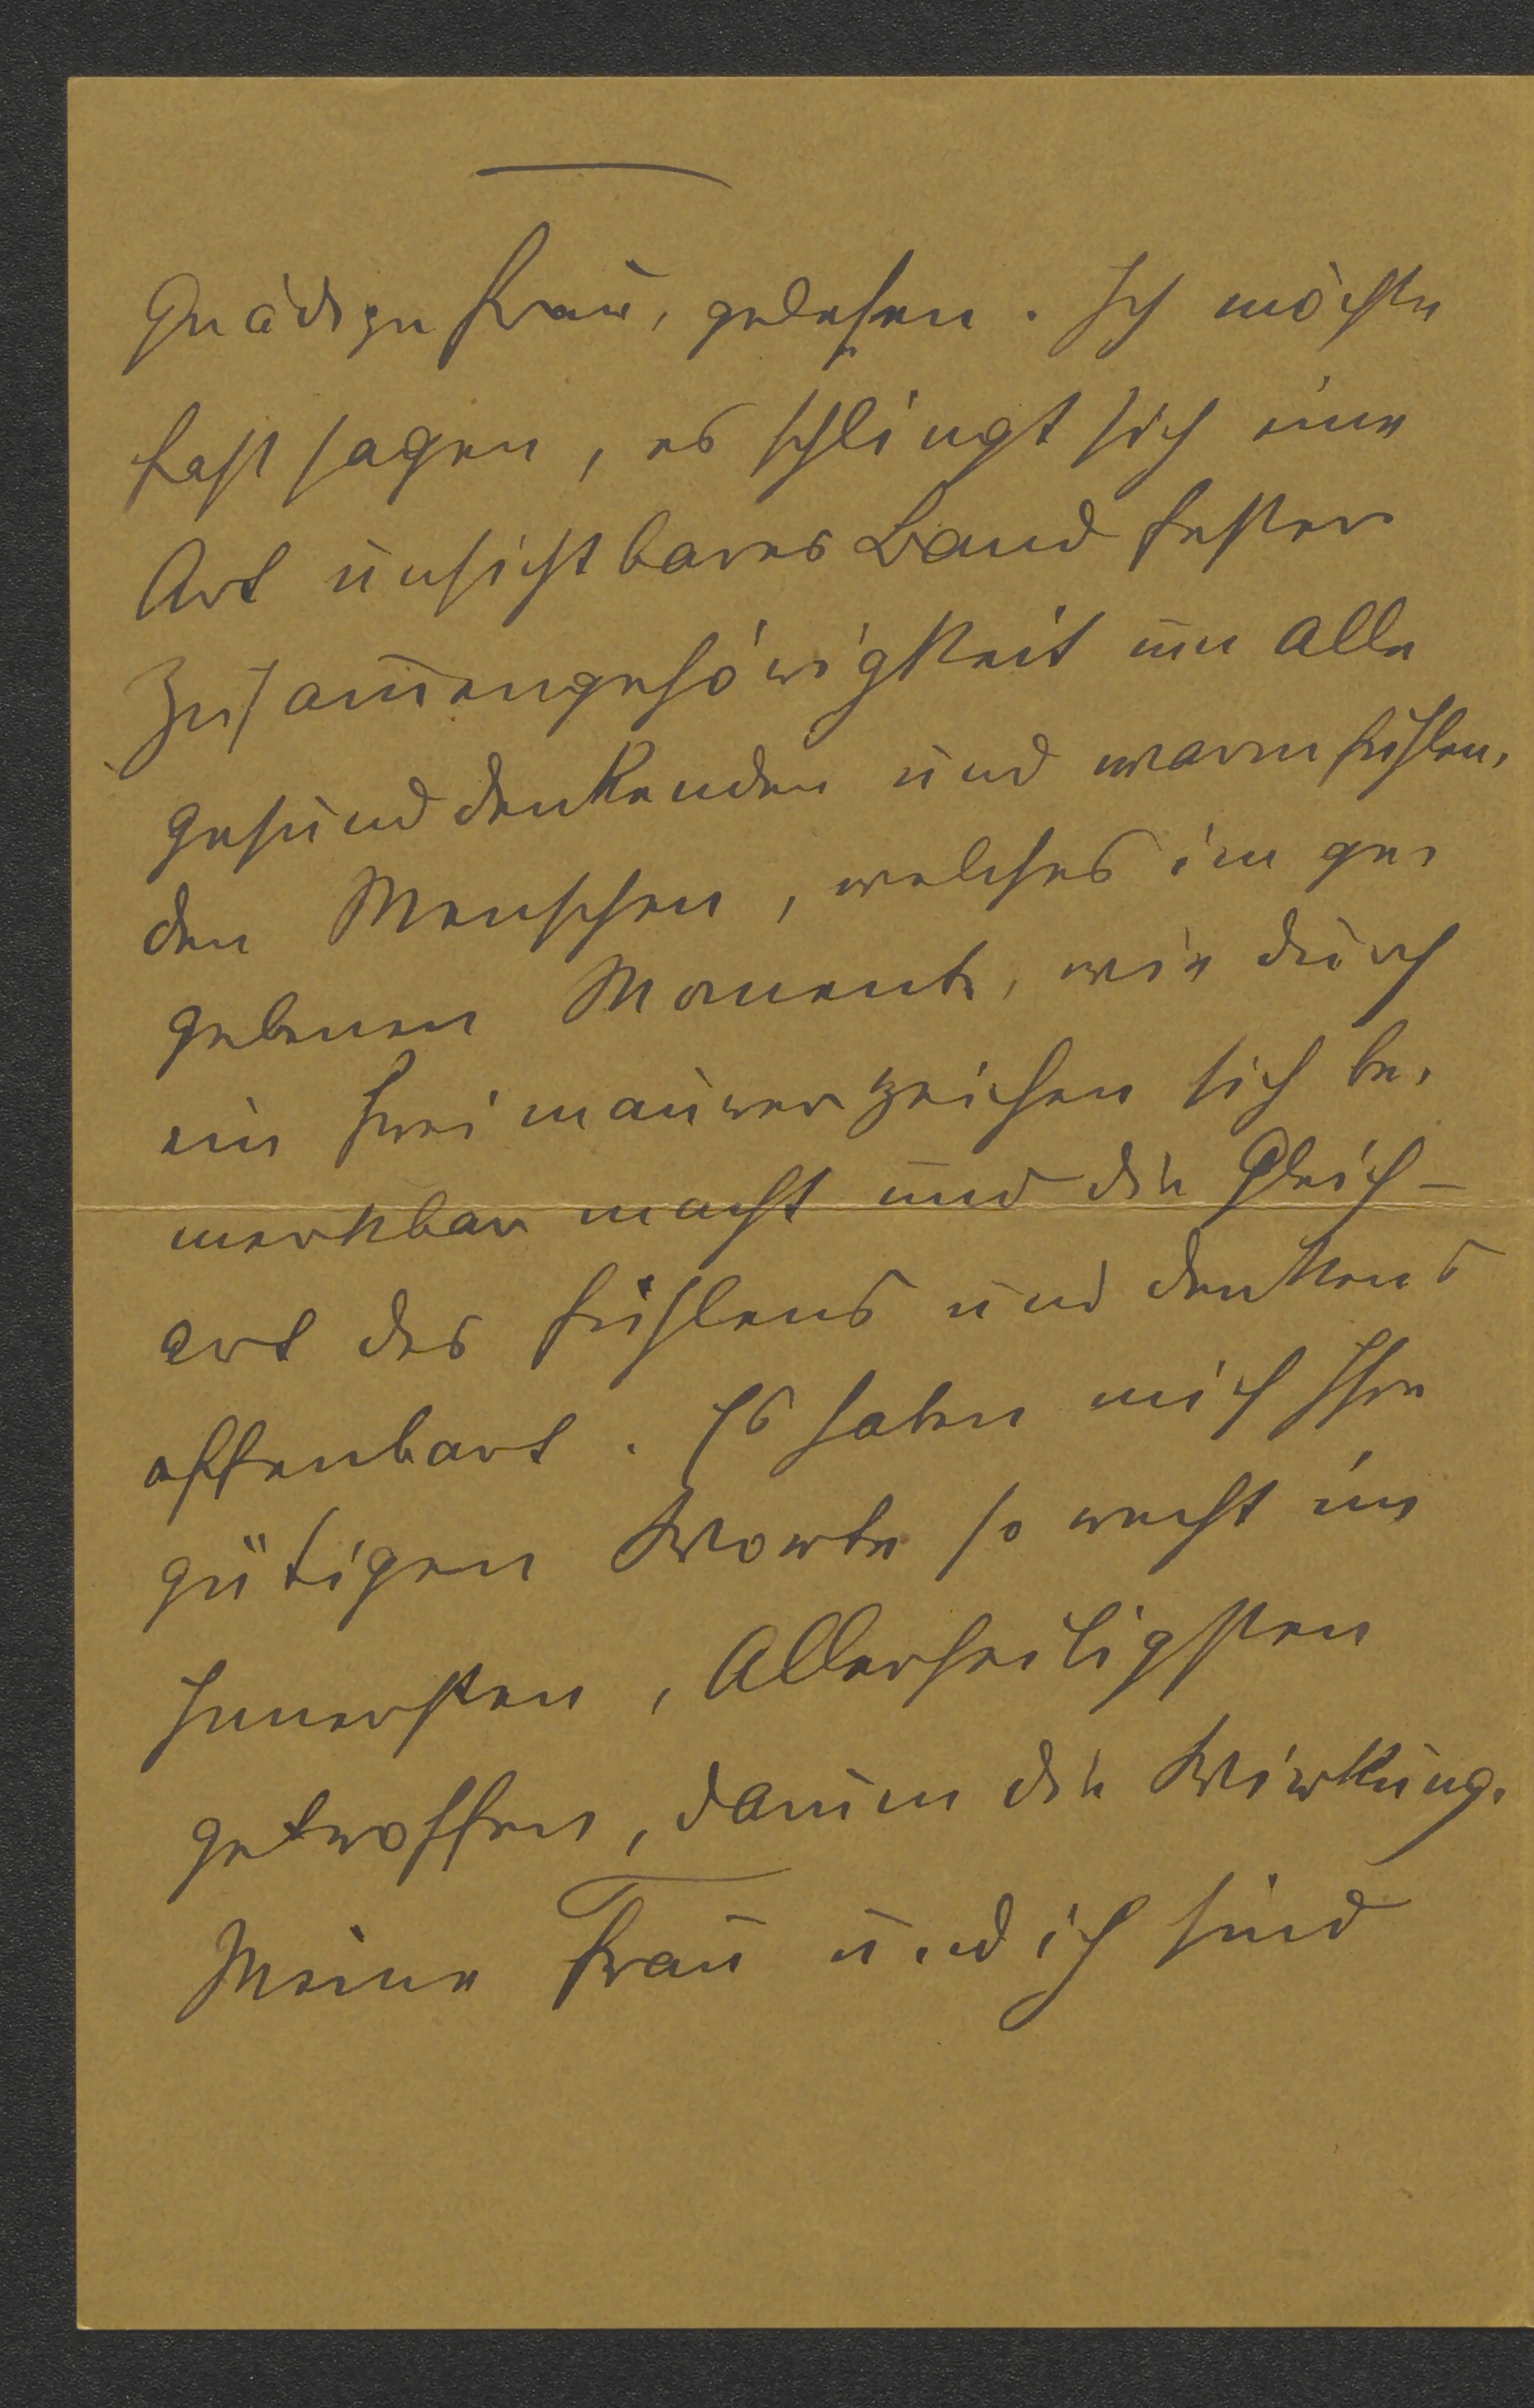 Gnädige Frau, gelesen. Ich möchte
fast sagen, es schlingt sich eine
Art unsichtbares Band fester
Zusam̅engehörigkeit um alle
gesund denkenden und warm fühlen-
den Menschen, welches im ge-
gebenen Momente, wie durch
ein Freimaurerzeichen sich be-
merkbar macht und die Gleich-
art des Fühlens und Denkens
offenbart. Es haben mich Ihre
gütigen Worte so recht im
Innersten, Allerheiligsten
getroffen, darum die Wirkung.
Meine Frau und ich sind